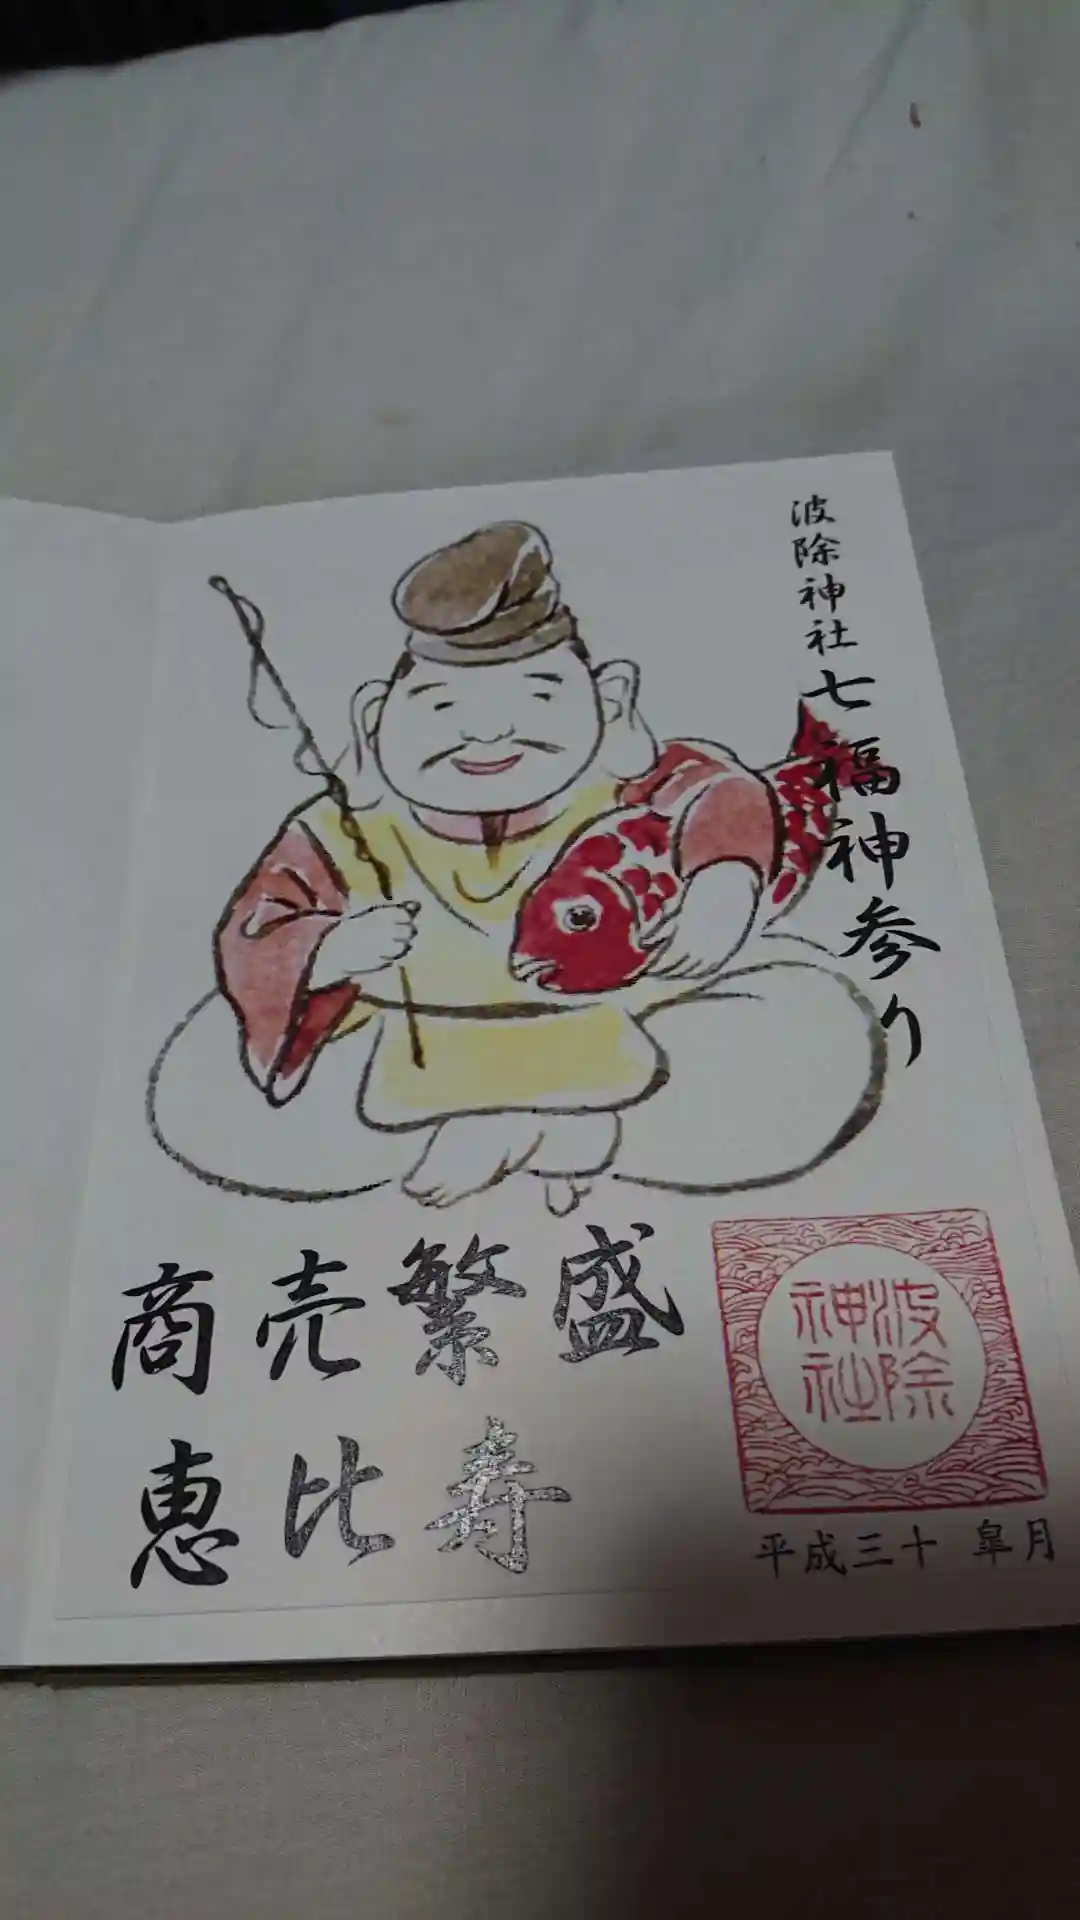 波除神社 七福神参り
商売繁盛
恵比寿
波除
神社
平成三十 皐月